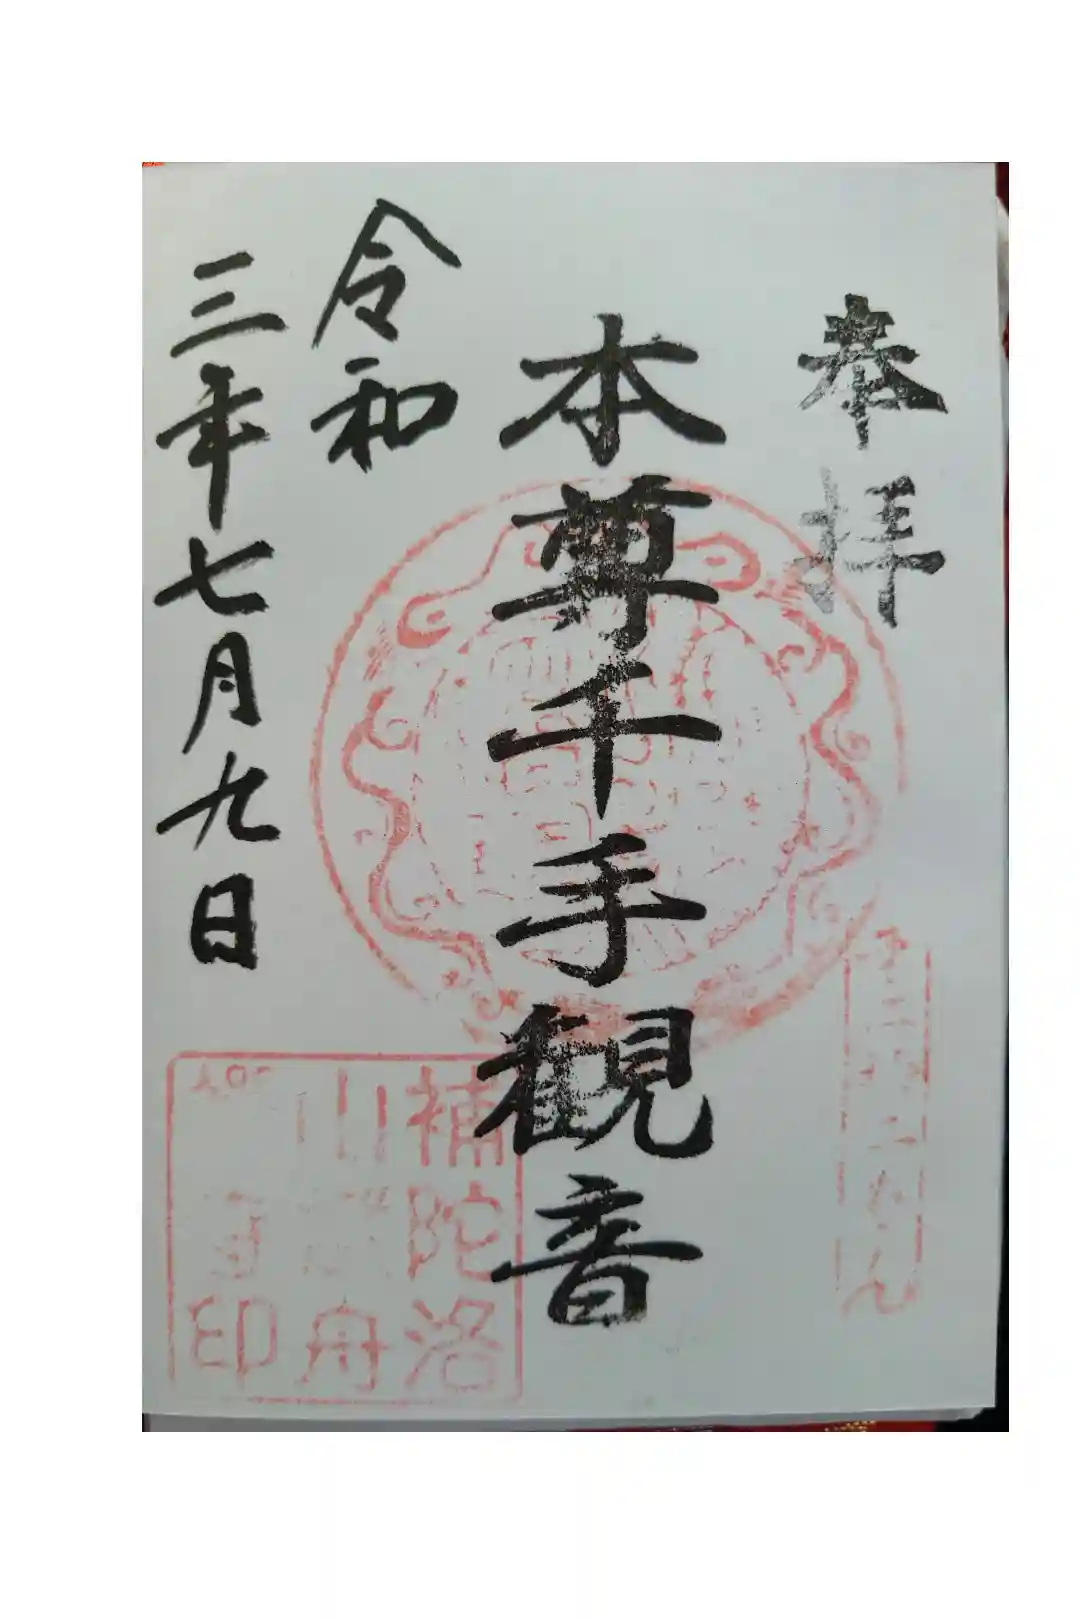 奉拝
本尊千手観音
令和
三年七月九日
補陀洛
山 舟
印